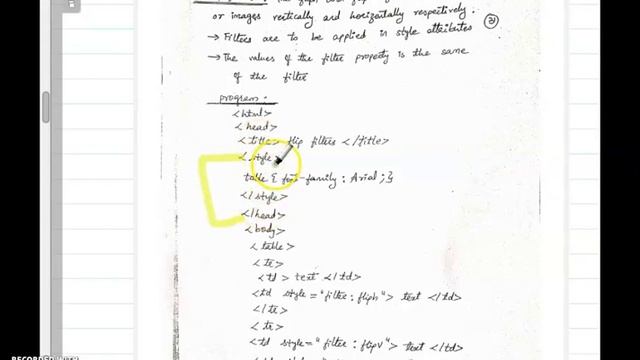 or images vertically and horizontally respectively.
(21)
→ Filters are to be applied in style attributes
→ The values of the filter property is the same
of the filter
program:
<html>
<head>
<title> flip filters </title>
<style
table { font-family : Arial ; }
</style>
</head>
<body>
<table>
<tr>
<td> text </td>
<td style="filter: fliph"> text </td>
</tr>
<tr>
<td style="filter: flipv"> text </td>